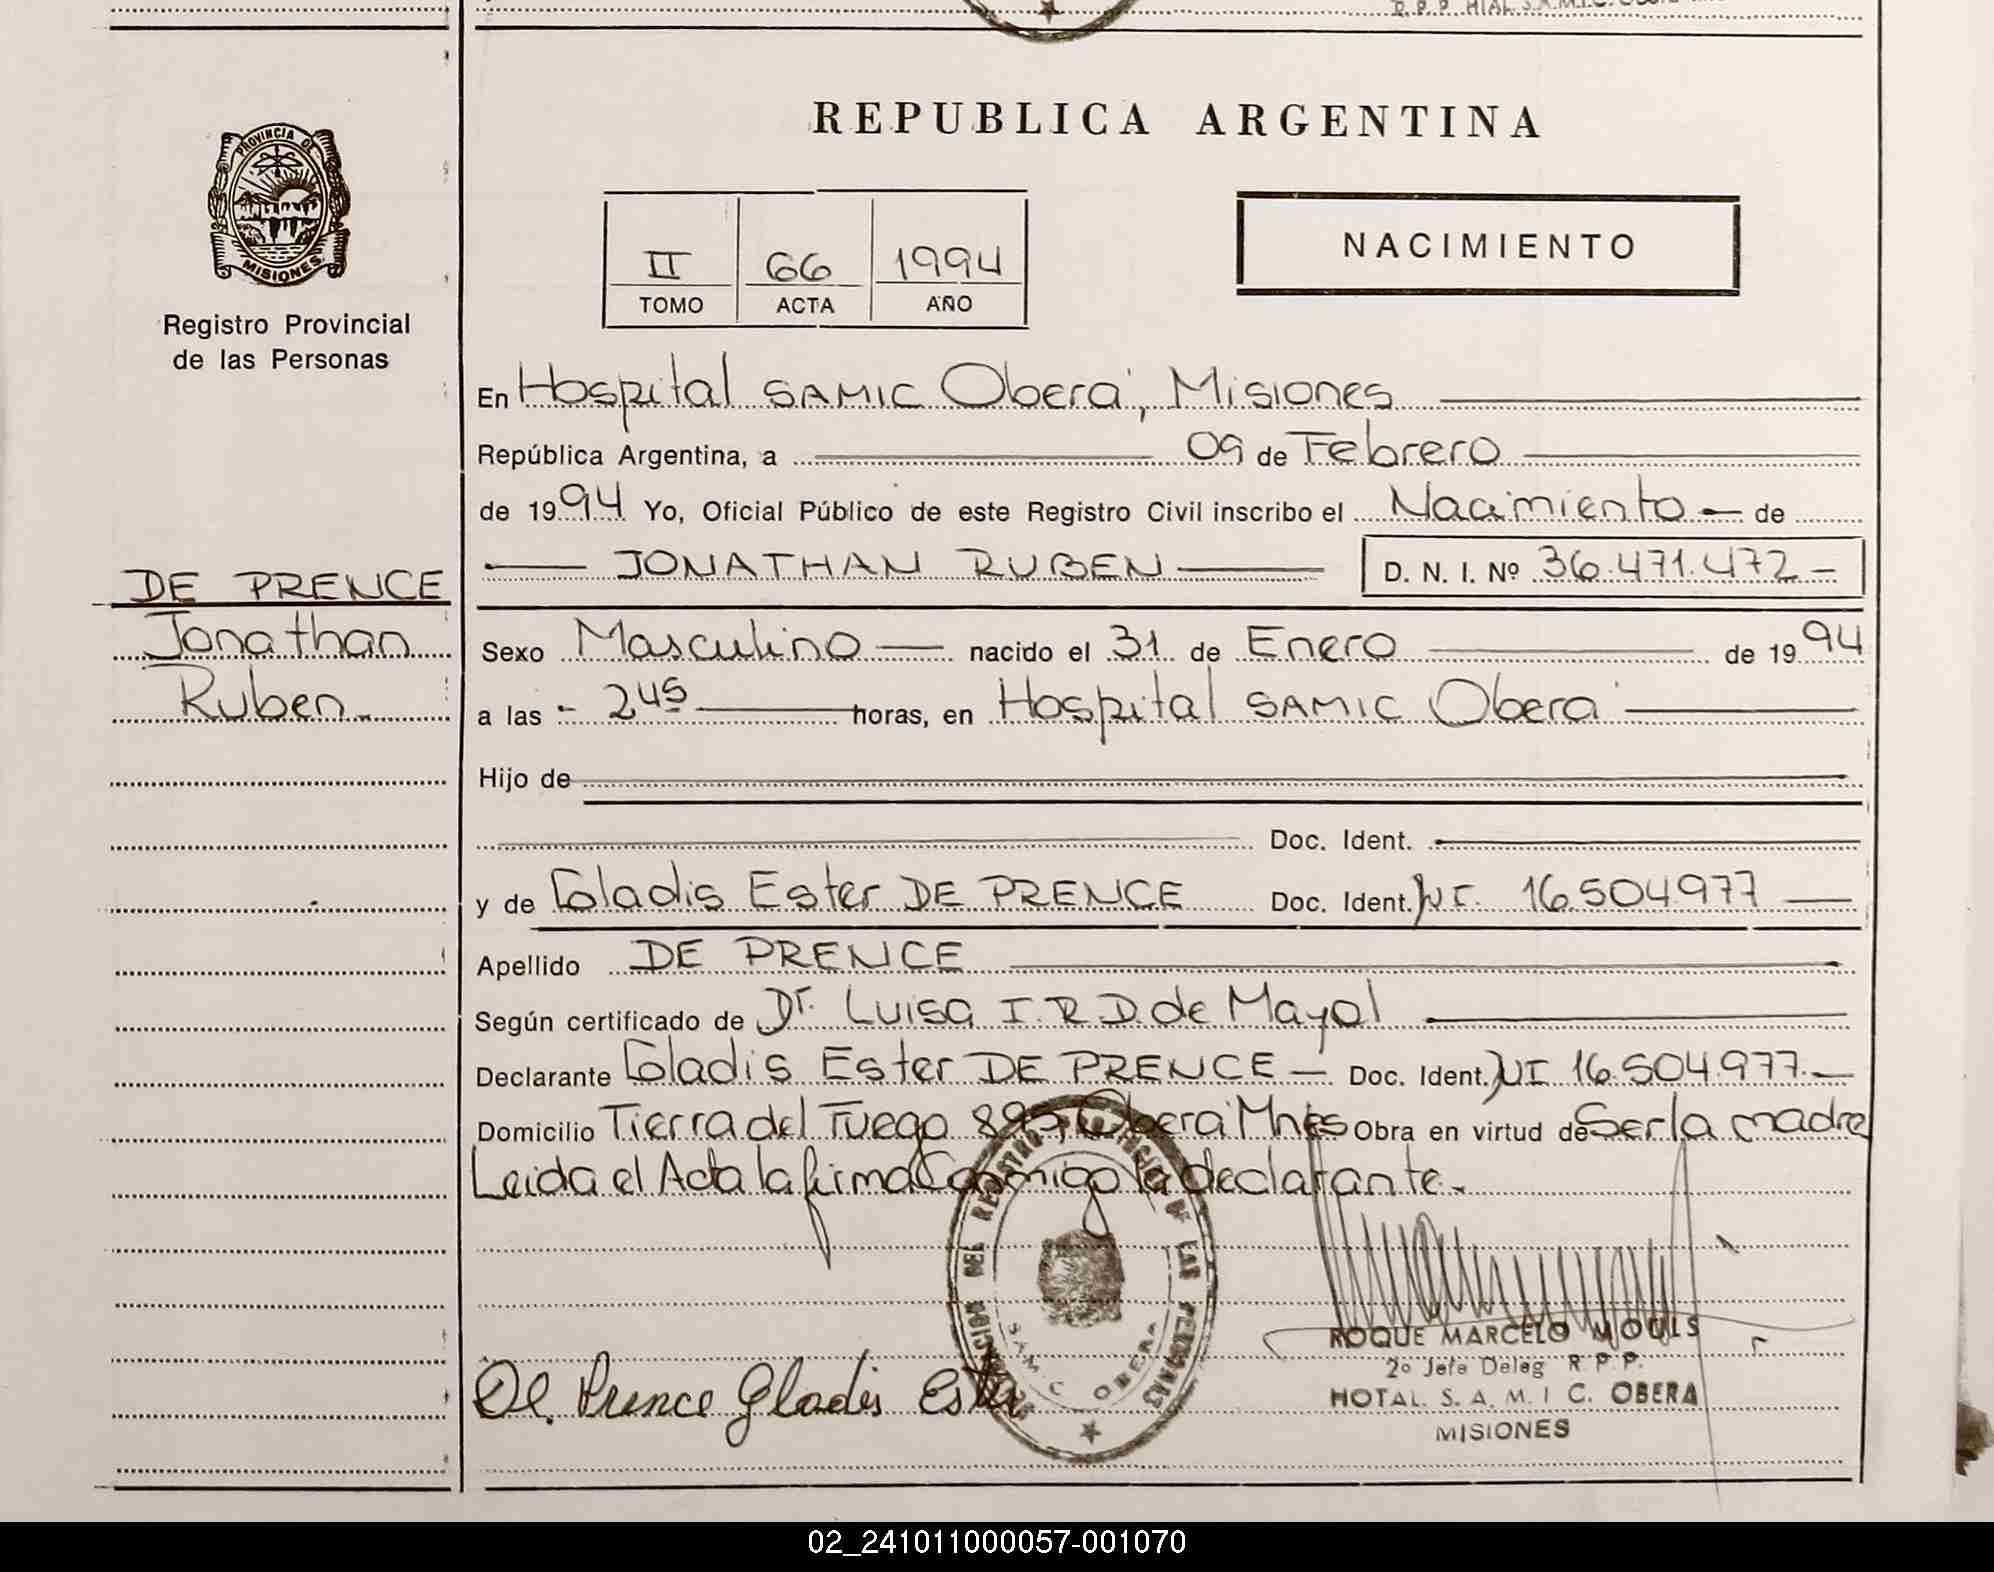 R.P.P. HTAL. S.A.M.I.C.
REPUBLICA ARGENTINA
PROVINCIA DE MISIONES
Registro Provincial
de las Personas
II 66 1994
TOMO ACTA AÑO
NACIMIENTO
En Hospital SAMIC Oberá, Misiones
República Argentina, a 09 de Febrero
de 1994 Yo, Oficial Público de este Registro Civil inscribo el Nacimiento de
JONATHAN RUBEN D. N. I. Nº 36.471.472
DE PRENCE
Jonathan
Ruben
Sexo Masculino nacido el 31 de Enero de 1994
a las 2 45 horas, en Hospital SAMIC Oberá
Hijo de
Doc. Ident.
y de Gladis Ester DE PRENCE Doc. Ident. 16.504.977
Apellido DE PRENCE
Según certificado de Dr. Luisa I. R. D. de Mayol
Declarante Gladis Ester DE PRENCE Doc. Ident. 16.504.977
Domicilio Tierra del Fuego Oberá Mnes Obra en virtud de Ser la madre
Leida el Acta la firma Conmigo la declarante.
DEL REGISTRO PROVINCIAL DE LAS PERSONAS
SAMIC OBERA
ROQUE MARCELO
2º Jefe Deleg R. P. P.
HOTAL. S. A. M. I C. OBERA
MISIONES
De Prence Gladis Ester
02_241011000057-001070